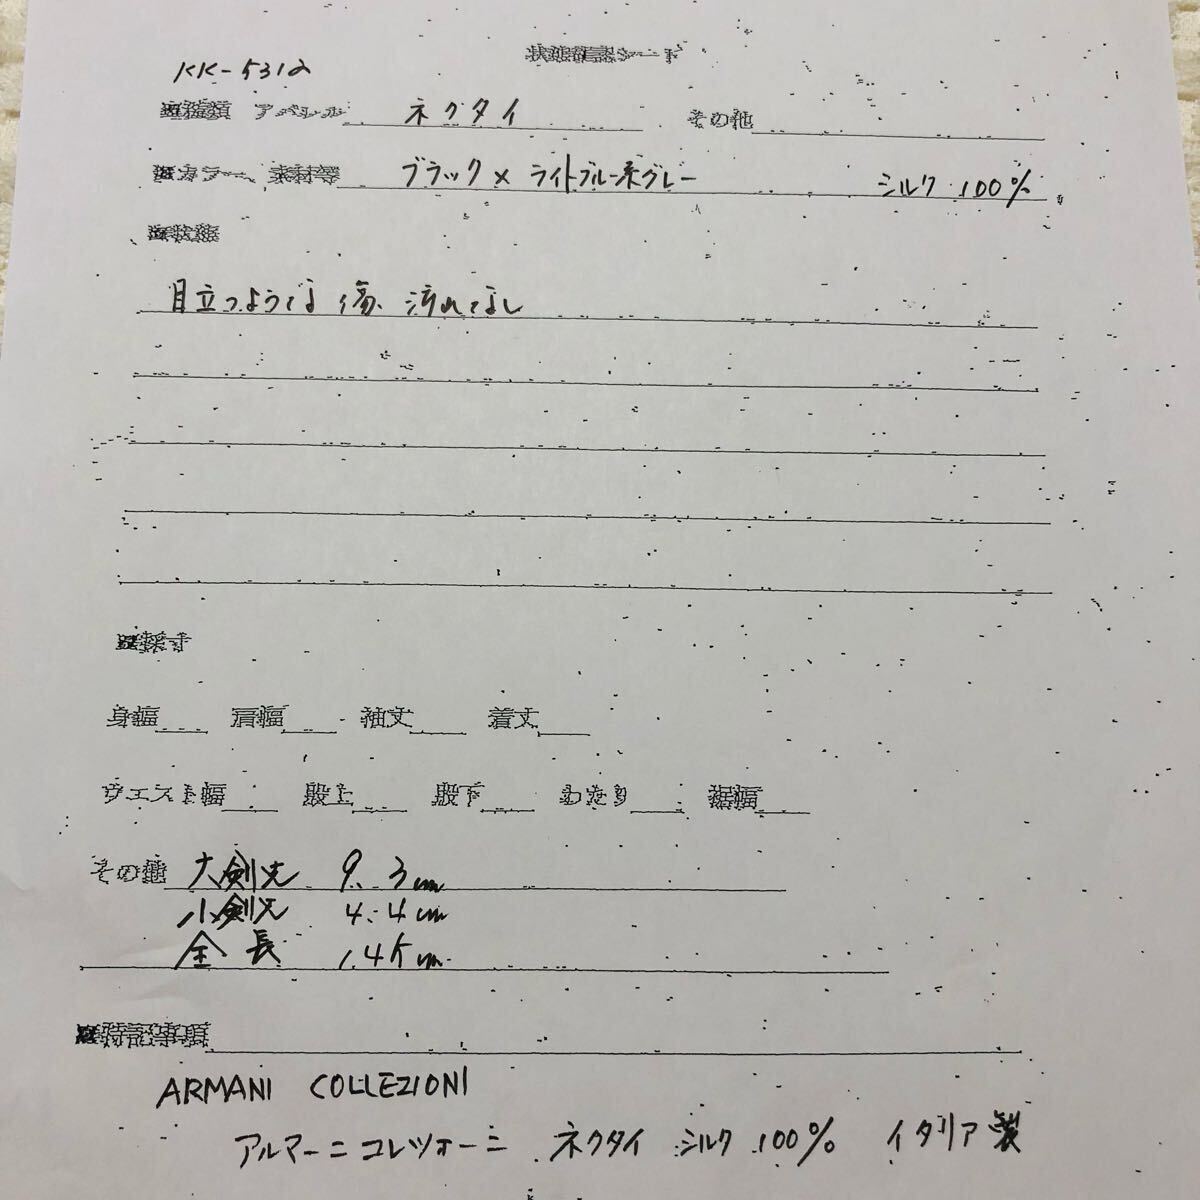 状態確認シート
KK-5312
■種類 アパレル ネクタイ その他
■カラー、素材等 ブラック×ライトブルー系グレー シルク 100%
■状態
目立つような傷、汚れなし
■採寸
身幅 肩幅 袖丈 着丈
ウエスト幅 股上 股下 わたり 裾幅
その他 大剣先 9.3cm
小剣先 4.4cm
全長 145cm
■特記事項
ARMANI COLLEZIONI
アルマーニコレツォーニ ネクタイ シルク 100% イタリア製